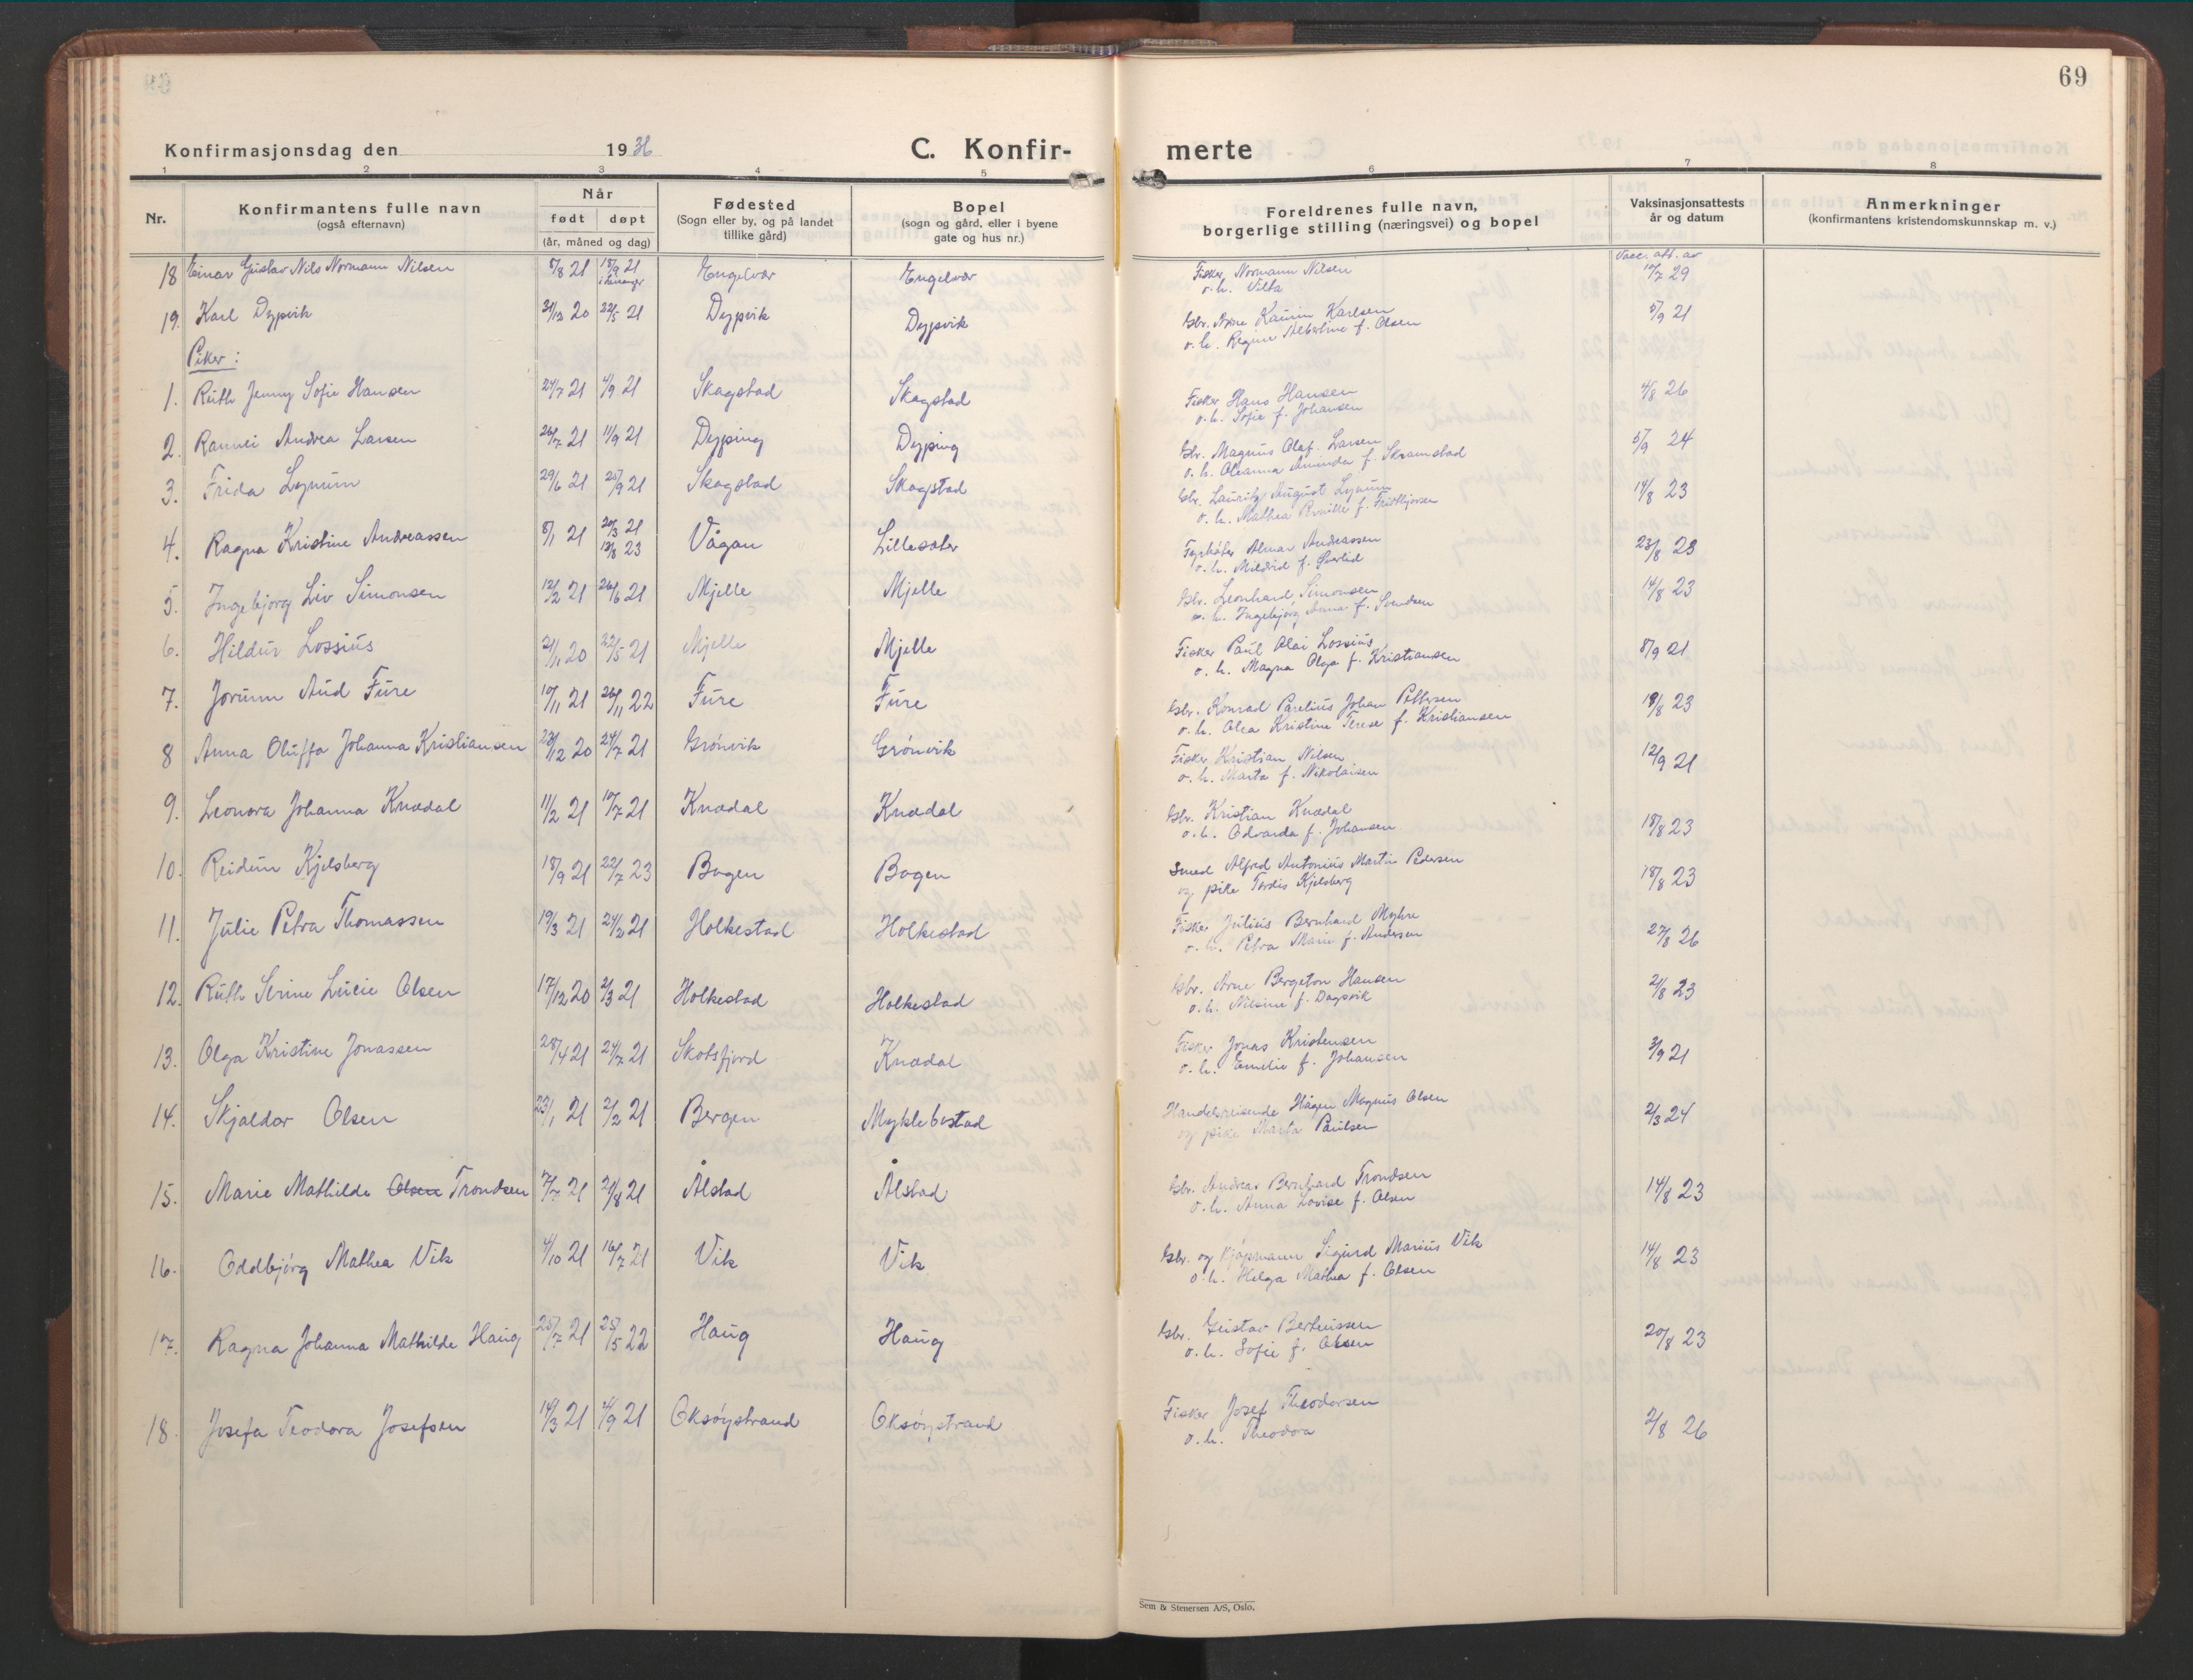 69
Konfirmasjonsdag den 1936 C. Konfirmerte
1 2 3 4 5 6 7 8
Nr. Konfirmantens fulle navn (også efternavn) Når født døpt (år, måned og dag) Fødested (Sogn eller by, og på landet tillike gård) Bopel (sogn og gård, eller i byene gate og hus nr.) Foreldrenes fulle navn, borgerlige stilling (næringsvei) og bopel Vaksinasjonsattests år og datum Anmerkninger (konfirmantens kristendomskunnskap m. v.)
Vacc. att. av
18 Einar Gustav Nils Normann Nilsen 5/8 21 18/9 21 Engelvær Engelvær Fisker Normann Nilsen 10/7 29
o. h. Vilta
19. Karl Dypvik 31/12 20 22/5 21 Dypvik Dypvik Gbr. Arne Kaurin Karlsen 5/9 21
o. h. Regine Albertine f. Olsen
Piker:
1. Ruth Jenny Sofie Hansen 24/7 21 4/9 21 Skagstad Skagstad Fisker Hans Hansen 4/8 26
o. h. Sofie f. Johansen
2. Rannei Andrea Larsen 26/7 21 11/9 21 Dyping Dyping Gbr. Magnus Olaf Larsen 5/9 24
o. h. Oleanna Aminda f. Skramstad
3. Frida Lynum 29/6 21 25/9 21 Skagstad Skagstad Gbr. Lauritz August Lynum 14/8 23
o. h. Mathea f. Fridthjofsen
4. Ragna Kristine Andreassen 8/1 21 20/3 21 Vågan Lillesæter Fyrbøter Almar Andreassen 23/8 23
13/8 23 o. h. Mildrid f.
5. Ingebjørg Liv Simonsen 12/2 21 26/6 21 Mjelle Mjelle Gbr. Leonhard Simonsen 14/8 23
o. h. Ingebjørg Anna f. Svendsen
6. Hildur Lossius 21/11 20 22/5 21 Mjelle Mjelle Fisker Paul Olai Lossius 8/9 21
o. h. Magna Olga f. Kristiansen
7. Jorunn Aud Fure 10/11 21 26/11 22 Fure Fure Gbr. Konrad Parelius Johan Pettersen 18/8 23
o. h. Olea Kristine Terese f. Kristiansen
8 Anna Oluffa Johanna Kristiansen 28/12 20 24/7 21 Grønvik Grønvik Fisker Kristian Nilsen 12/9 21
o. h. Marta f. Nikolaisen
9. Leonora Johanna Knædal 11/2 21 10/7 21 Knædal Knædal Gbr. Kristian Knædal 18/8 23
o. h. Edvarda f. Johansen
10. Reidun Kjelsberg 18/9 21 22/7 23 Bogen Bogen Smed Alfred Antonius Martin Pedersen 18/8 23
og pike Tordis Kjelsberg
11. Julie Petra Thomassen 19/3 21 24/2 21 Holkestad Holkestad Fisker Julius Bernhard Myhre 27/8 26
o. h. Petra Marie f. Andersen
12. Ruth Serine Lucie Olsen 17/12 20 2/3 21 Holkestad Holkestad Gbr. Arne Bergeton Hansen 21/8 23
o. h. Nilsine f. Dypvik
13. Olga Kristine Jonassen 28/4 21 24/7 21 Skotsfjord Knædal Fisker Jonas Kristensen 3/9 21
o. h. Emilie f. Johansen
14. Skjaldvor Olsen 23/1 21 2/2 21 Bergen Myklebostad Handelsreisende Hågen Magnus Olsen 2/3 24
og pike Marta Paulsen
15. Marie Mathilde Olsen Trondsen 7/7 21 21/8 21 Ålstad Ålstad Gbr. Andreas Bernhard Trondsen 14/8 23
o. h. Anna Lovise f. Olsen
16. Oddbjørg Mathea Vik 4/10 21 16/7 21 Vik Vik Gbr. og kjøpmann Sigurd Marius Vik 14/8 23
o. h. Helga Mathea f. Olsen
17. Ragna Johanna Mathilde Haug 25/7 21 25/5 22 Haug Haug Gbr. Gustav Berteussen 20/8 23
o. h. Sofie f. Olsen
18. Josefa Teodora Josefsen 14/3 21 4/9 21 Oksøystrand Oksøystrand Fisker Josef Theodorsen 2/8 26
o. h. Theodora
Sem & Stenersen A/S, Oslo.